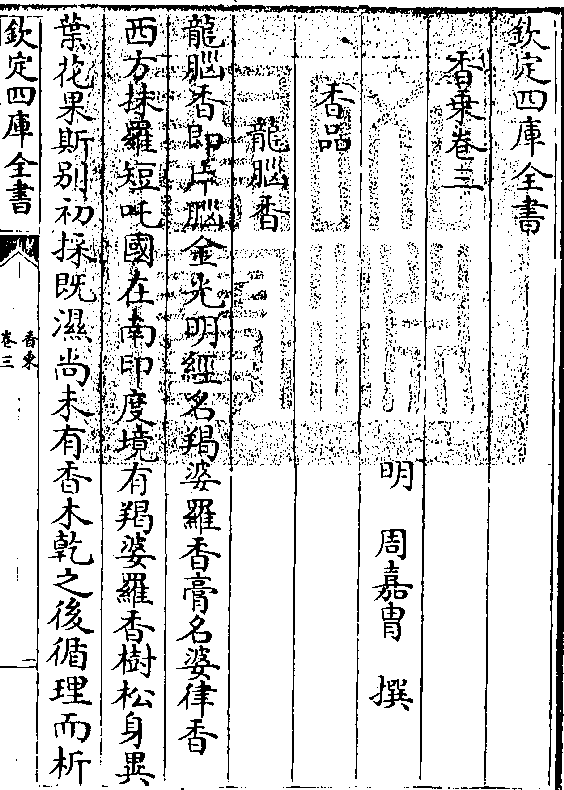 欽定四庫全書
香乗卷三
明 周嘉胄 撰
香品
龍腦香
龍腦香即片腦金光明經名羯婆羅香膏名婆律香
西方抹羅短吒國在南印度境有羯婆羅香樹松身異
葉花果斯别初採既濕尚未有香木乾之後循理而析
欽定四庫全書
香乗
卷三